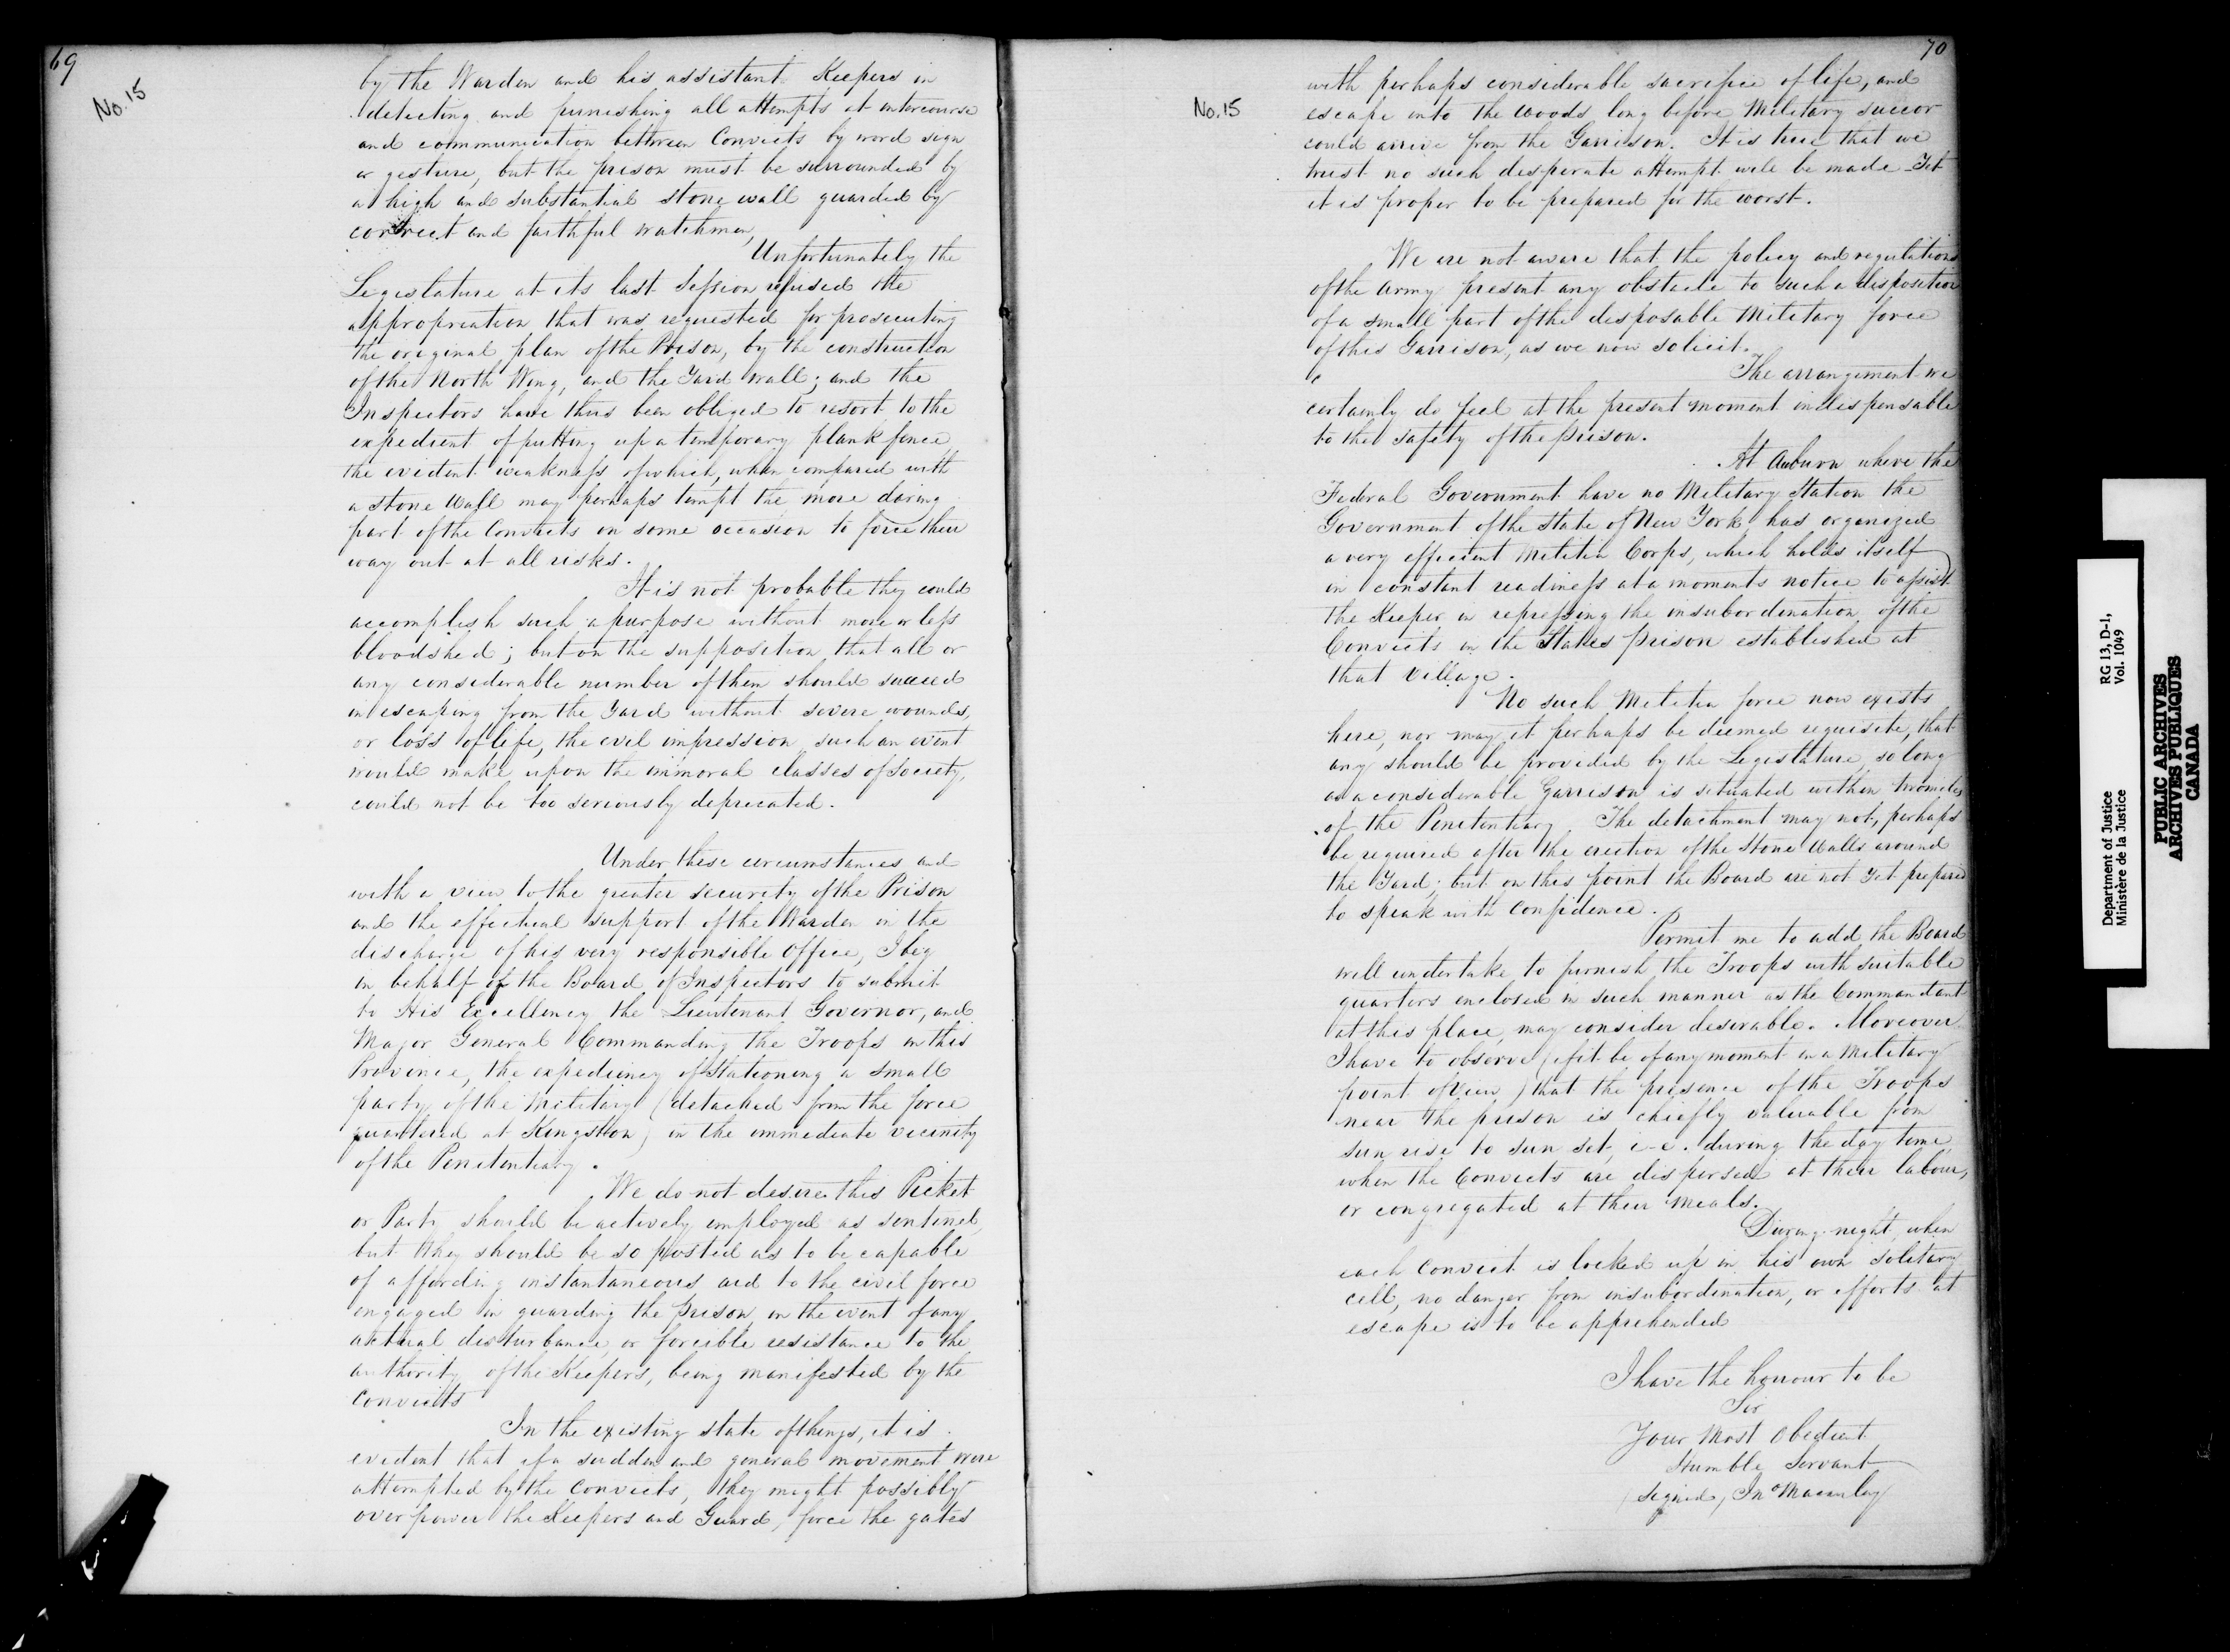 69
No. 15
by the Warden and his assistant Keepers in
detecting and punishing all attempts at intercourse
and communication between Convicts by word sign
or gesture, but the prison must be surrounded by
a high and substantial stone wall guarded by
correct and faithful watchmen,
Unfortunately the
Legislature at its last Session refused the
appropriation that was requested for prosecuting
the original plan of the Prison, by the construction
of the North Wing, and the Yard wall; and the
Inspectors have thus been obliged to resort to the
expedient of putting up a temporary plank fence
the evident weakness of which, when compared with
a stone wall may perhaps tempt the more daring
part of the Convicts on some occasion to force their
way out at all risks.
It is not probable they could
accomplish such a purpose without more or less
bloodshed; but on the supposition that all or
any considerable number of them should succeed
in escaping from the Yard without severe wounds,
or loss of life, the evil impression such an event
would make upon the immoral classes of society,
could not be too seriously deprecated.
Under these circumstances and
with a view to the greater security of the Prison
and the effectual support of the Warden in the
discharge of his very responsible Office, I beg
in behalf of the Board of Inspectors to submit
to His Excellency the Lieutenant Governor, and
Major General Commanding the Troops in this
Province, the expediency of Stationing a small
party of the Military (detached from the force
quartered at Kingston) in the immediate vicinity
of the Penitentiary.
We do not desire this Picket
or Party should be actively employed as sentinel,
but they should be so posted as to be capable
of affording instantaneous aid to the civil force
engaged in guarding the prison, in the event of any
actual disturbance, or forcible resistance to the
authority of the Keepers, being manifested by the
convicts
In the existing state of things, it is
evident that if a sudden and general movement were
attempted by the Convicts, they might possibly
overpower the Keepers and Guard, force the gates
70
No. 15
with perhaps considerable sacrifice of life, and
escape into the woods long before Military succor
could arrive from the Garrison. It is true that we
trust no such desperate attempt will be made - Yet
it is proper to be prepared for the worst.
We are not aware that the policy and regulations
of the Army present any obstacle to such a disposition
of a small part of the disposable Military force
of this Garrison, as we now solicit.
The arrangement we
certainly do feel at the present moment indispensable
to the safety of the prison.
At Auburn where the
Federal Government have no Military Station the
Government of the State of New York has organized
a very efficient Militia Corps, which holds itself
in constant readiness at a moments notice to assist
the Keeper in repressing the insubordination of the
Convicts in the States prison established at
that Village.
No such Militia force now exists
here, nor may it perhaps be deemed requisite, that
any should be provided by the Legislature, so long
as a considerable Garrison is situated within two miles
of the Penitentiary. The detachment may not, perhaps
be required after the erection of the Stone Walls around
the Yard; but on this point the Board are not yet prepared
to speak with confidence.
Permit me to add the Board
will undertake to furnish the Troops with suitable
quarters enclosed in such manner as the Commandant
at this place, may consider desirable. Moreover
I have to observe (if it be of any moment in a Military
point of view) that the presence of the Troops
near the prison is chiefly valuable from
sun rise to sun set, i-e. during the day time
when the Convicts are dispersed at their labour,
or congregated at their meals.
During night, when
each Convict is locked up in his own solitary
cell, no danger from insubordination, or efforts at
escape is to be apprehended
I have the honour to be
Sir
Your Most Obedient
Humble Servant
signed, Jno Macaulay
Department of Justice
Ministère de la Justice
RG 13, D-1,
Vol. 1049
PUBLIC ARCHIVES
ARCHIVES PUBLIQUES
CANADA